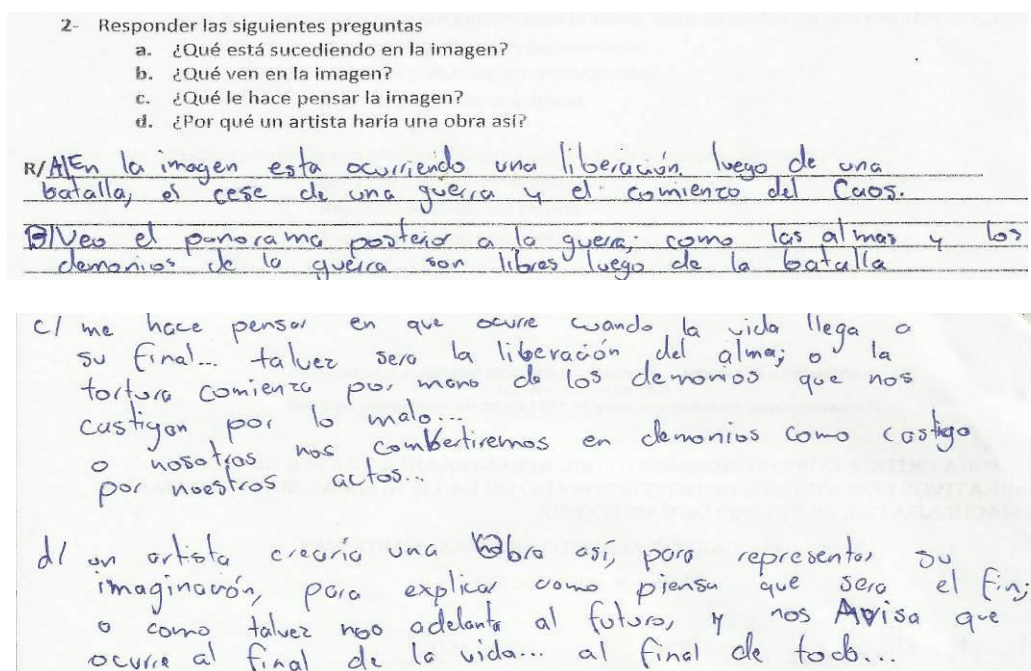 2- Responder las siguientes preguntas
a. ¿Qué está sucediendo en la imagen?
b. ¿Qué ven en la imagen?
c. ¿Qué le hace pensar la imagen?
d. ¿Por qué un artista haría una obra así?
R/ A/ En la imagen esta ocurriendo una liberación luego de una
batalla, el cese de una guerra y el comienzo del Caos.
B/ Veo el panorama posterior a la guerra; como las almas y los
demonios de la guerra son libres luego de la batalla
c/ me hace pensar en que ocurre cuando la vida llega a
su final... talvez sera la liberación del alma; o la
tortura comienza por mano de los demonios que nos
castigan por lo malo...
o nosotros nos combertiremos en demonios como castigo
por nuestros actos...
d/ un artista crearia una Obra así, para representar su
imaginación, para explicar como piensa que sera el fin;
o como talvez nos adelanta al futuro, y nos Avisa que
ocurre al final de la vida... al final de todo...